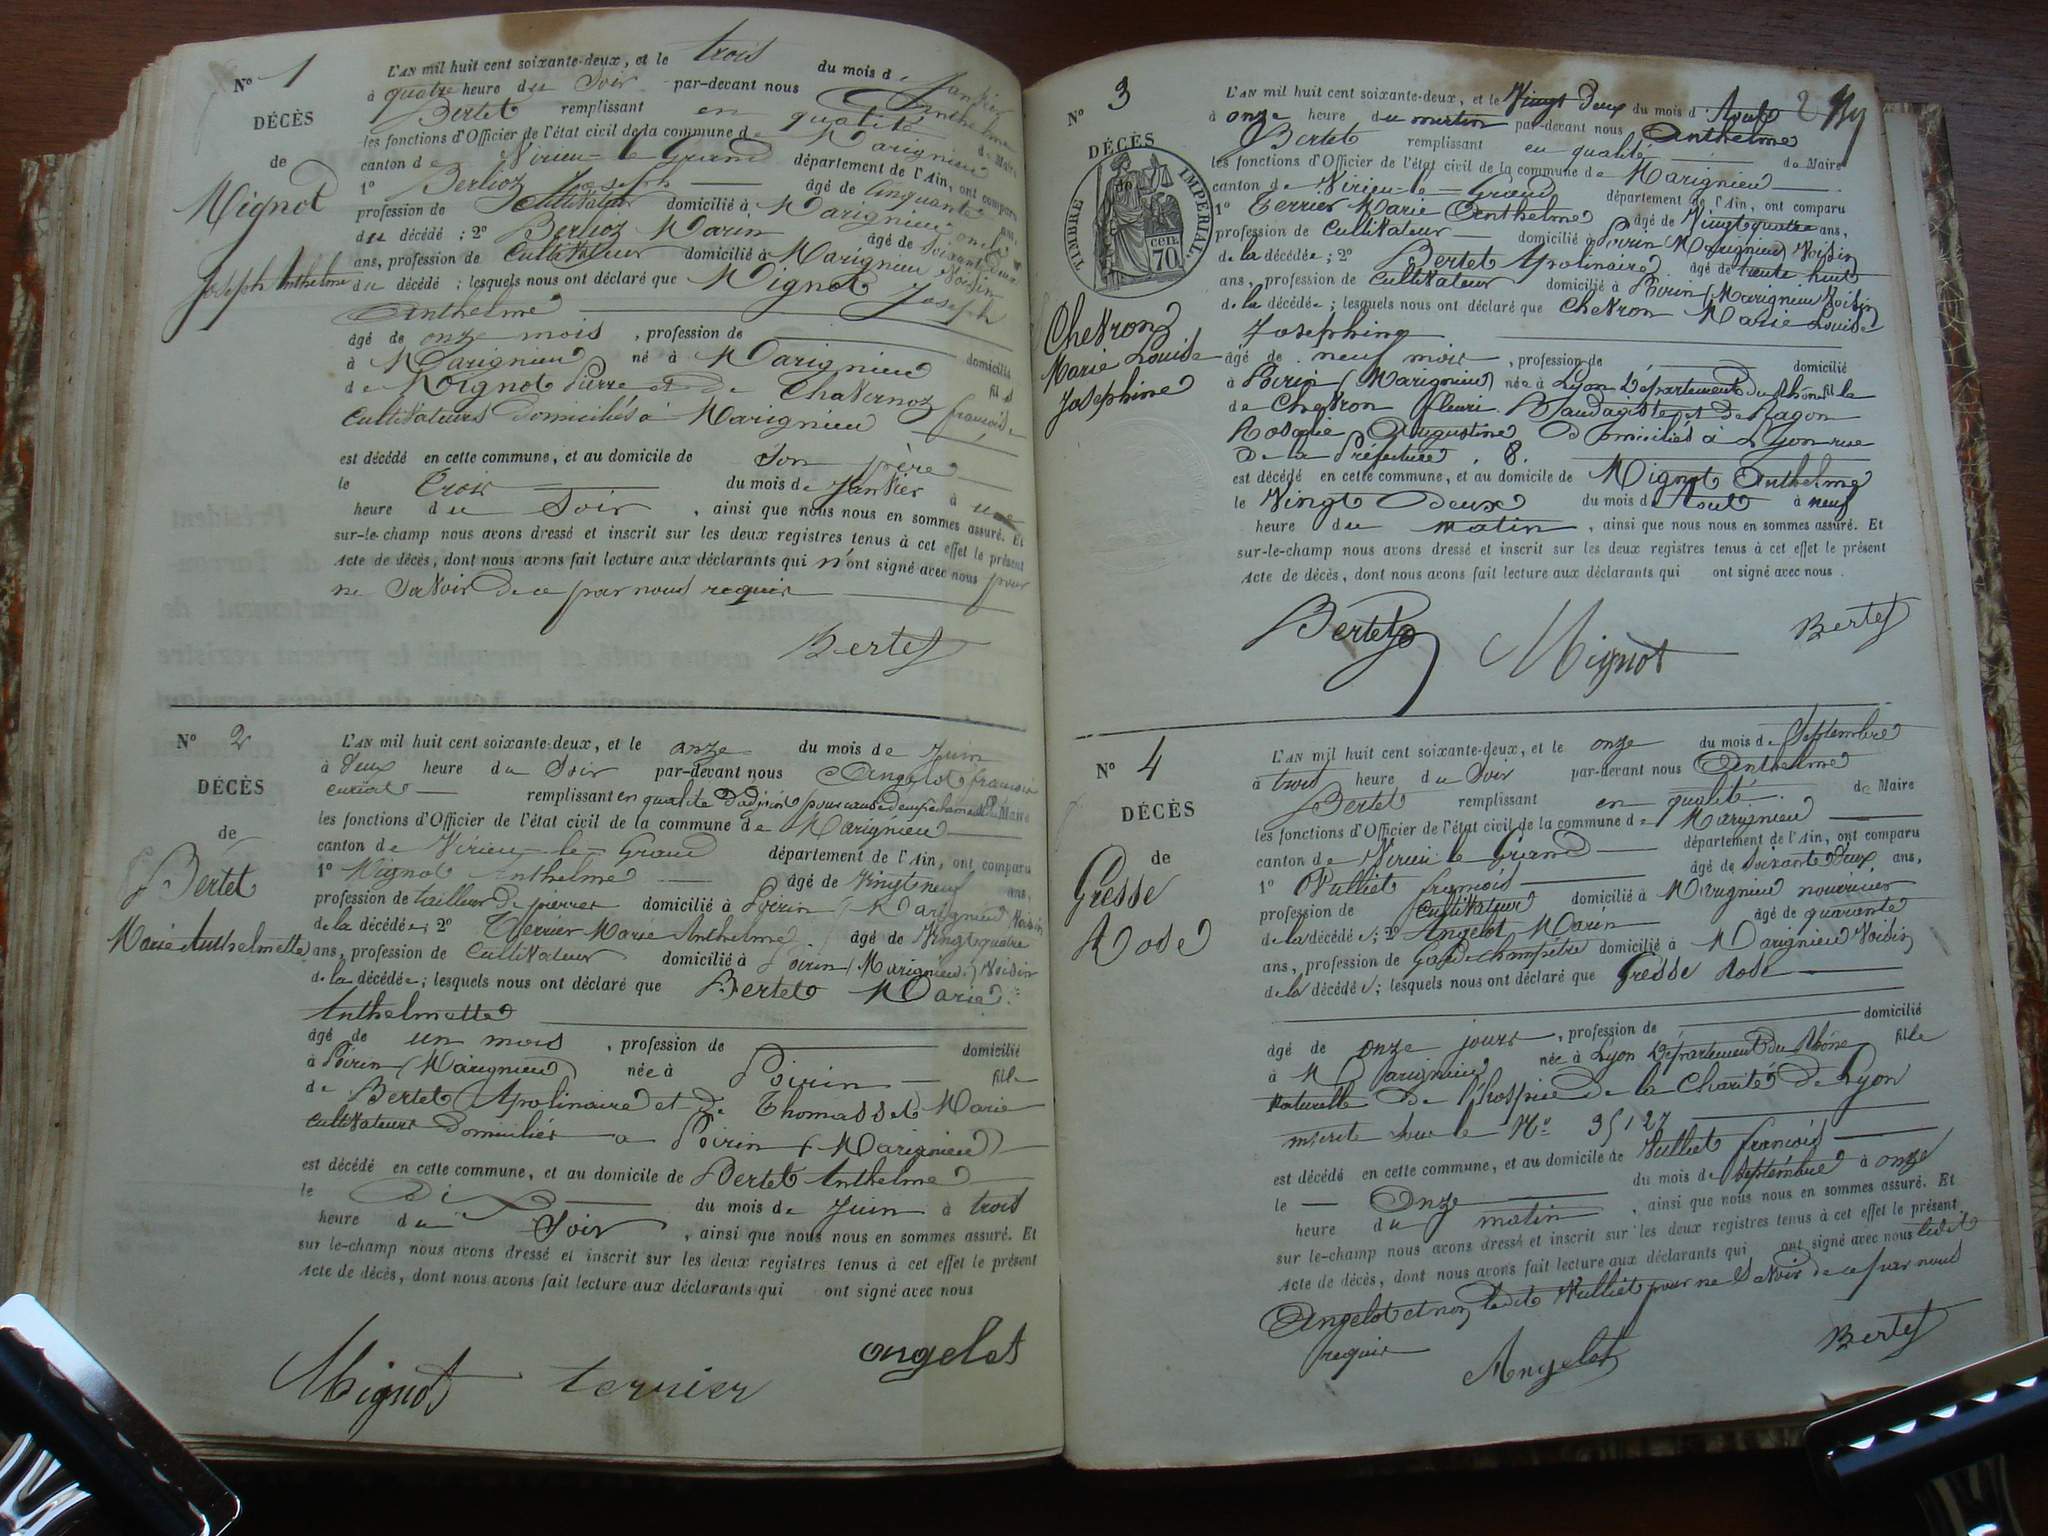 N° 1
DÉCÈS
de
Mignot
Joseph Anthelme
L'AN mil huit cent soixante-deux, et le trois du mois de Janvier
à quatre heure du Soir par-devant nous Anthelme
Bertet remplissant en qualité de Maire
les fonctions d'Officier de l'état civil de la commune de Marignieu
canton de Virieu-le-Grand département de l'Ain, ont comparu
1° Berlioz Joseph âgé de Cinquante ans,
profession de Cultivateur domicilié à Marignieu oncle
du décédé ; 2° Berlioz Marin âgé de soixante deux
ans, profession de Cultivateur domicilié à Marignieu Voisin
du décédé ; lesquels nous ont déclaré que Mignot Joseph
Anthelme
âgé de onze mois , profession de domicilié
à Marignieu né à Marignieu fils
de Mignot Pierre et de Chavernoz françoise
Cultivateurs domiciliés à Marignieu
est décédé en cette commune, et au domicile de Son père
le trois du mois de Janvier à une
heure du Soir , ainsi que nous nous en sommes assuré. Et
sur-le-champ nous avons dressé et inscrit sur les deux registres tenus à cet effet le présent
Acte de décès, dont nous avons fait lecture aux déclarants qui n'ont signé avec nous pour
ne Savoir de ce par nous requis
Bertet
N° 2
DÉCÈS
de
Bertet
Marie Anthelmette
L'AN mil huit cent soixante-deux, et le onze du mois de Juin
à deux heure du Soir par-devant nous Angelot françois
curial remplissant en qualité d'adjoint pour cause d'empêchement de Maire
les fonctions d'Officier de l'état civil de la commune de Marignieu
canton de Virieu-le-Grand département de l'Ain, ont comparu
1° Mignot Anthelme âgé de Vingt neuf ans,
profession de tailleur de pierres domicilié à Poirin (Marignieu) Voisin
de la décédée; 2° Terrier Marie Anthelme âgé de Vingt quatre
ans, profession de Cultivateur domicilié à Poirin (Marignieu) Voisin
de la décédée; lesquels nous ont déclaré que Bertet Marie
Anthelmette
âgé de un mois , profession de domicilié
à Poirin (Marignieu) née à Poirin fille
de Bertet Apolinaire et de Thomasset Marie
Cultivateurs domiciliés à Poirin (Marignieu)
est décédé en cette commune, et au domicile de Bertet Anthelme
le Dix du mois de Juin à trois
heure du Soir , ainsi que nous nous en sommes assuré. Et
sur le-champ nous avons dressé et inscrit sur les deux registres tenus à cet effet le présent
Acte de décès, dont nous avons fait lecture aux déclarants qui ont signé avec nous
Mignot terrier angelot
2
N° 3
DÉCÈS
de
TIMBRE IMPÉRIAL
70 CEN.
Chevron
Marie Louise
Josephine
L'AN mil huit cent soixante-deux, et le Vingt deux du mois d'Aout
à onze heure du matin par-devant nous Anthelme
Bertet remplissant en qualité de Maire
les fonctions d'Officier de l'état civil de la commune de Marignieu
canton de Virieu-le-Grand département de l'Ain, ont comparu
1° Terrier Marie Anthelme âgé de Vingt quatre ans,
profession de Cultivateur domicilié à Poirin (Marignieu) Voisin
de la décédée; 2° Bertet Apolinaire âgé de trente huit
ans, profession de Cultivateur domicilié à Poirin (Marignieu) Voisin
de la décédée; lesquels nous ont déclaré que Chevron Marie Louise
Josephine
âgé de neuf mois , profession de domicilié
à Poirin (Marignieu) née à Lyon Département du Rhône fille
de Chevron fleuri Bandagiste et de Ragon
Rosalie Augustine Domiciliés à Lyon rue
de la Préfecture 8.
est décédé en cette commune, et au domicile de Mignot Anthelme
le Vingt Deux du mois d'Aout à neuf
heure du matin , ainsi que nous nous en sommes assuré. Et
sur-le-champ nous avons dressé et inscrit sur les deux registres tenus à cet effet le présent
Acte de décès, dont nous avons fait lecture aux déclarants qui ont signé avec nous .
Bertet Mignot Bertet
N° 4
DÉCÈS
de
Gresse
Rose
L'AN mil huit cent soixante-deux, et le onze du mois de Septembre
à trois heure du Soir par-devant nous Anthelme
Bertet remplissant en qualité de Maire
les fonctions d'Officier de l'état civil de la commune de Marignieu
canton de Virieu le Grand département de l'Ain, ont comparu
1° Vulliet françois âgé de Soixante Deux ans,
profession de Cultivateur domicilié à Marignieu nourricier
de la décédée; 2° Angelot Marin âgé de quarante
ans, profession de Garde champêtre domicilié à Marignieu Voisin
de la décédée; lesquels nous ont déclaré que Gresse Rose
âgé de onze jours , profession de domicilié
à Marignieu née à Lyon Département du Rhône fille
Naturelle de l'hospice de la Charité de Lyon
inscrite sous le N° 35127
est décédé en cette commune, et au domicile de Vulliet françois
le onze du mois de Septembre à onze
heure du matin , ainsi que nous nous en sommes assuré. Et
sur le-champ nous avons dressé et inscrit sur les deux registres tenus à cet effet le présent
Acte de décès, dont nous avons fait lecture aux déclarants qui ont signé avec nous ledit
Angelot et non ledit Vulliet pour ne Savoir de ce par nous
requis
Angelot Bertet